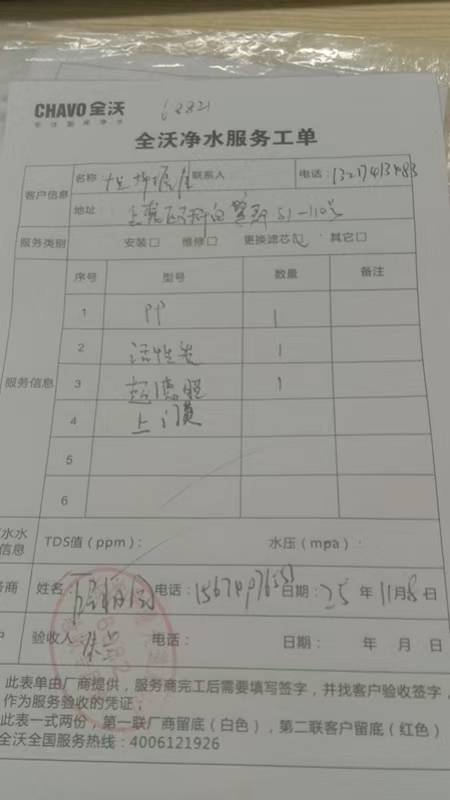 CHAVO 全沃
专注厨房净水
62821
全沃净水服务工单
客户信息
名称 联系人 电话：
地址 51-110号
服务类别 安装□ 维修□ 更换滤芯☑ 其它□
服务信息
序号 型号 数量 备注
1 PP 1
2 活性炭 1
3 超滤膜 1
4 上门费
5
6
水水
信息 TDS值（ppm）： 水压（mpa）：
务商 姓名： 电话： 日期：25 年 11月8日
户 验收人： 电话： 日期： 年 月 日
此表单由厂商提供，服务商完工后需要填写签字，并找客户验收签字，
作为服务验收的凭证；
此表一式两份，第一联厂商留底（白色），第二联客户留底（红色）
全沃全国服务热线：4006121926